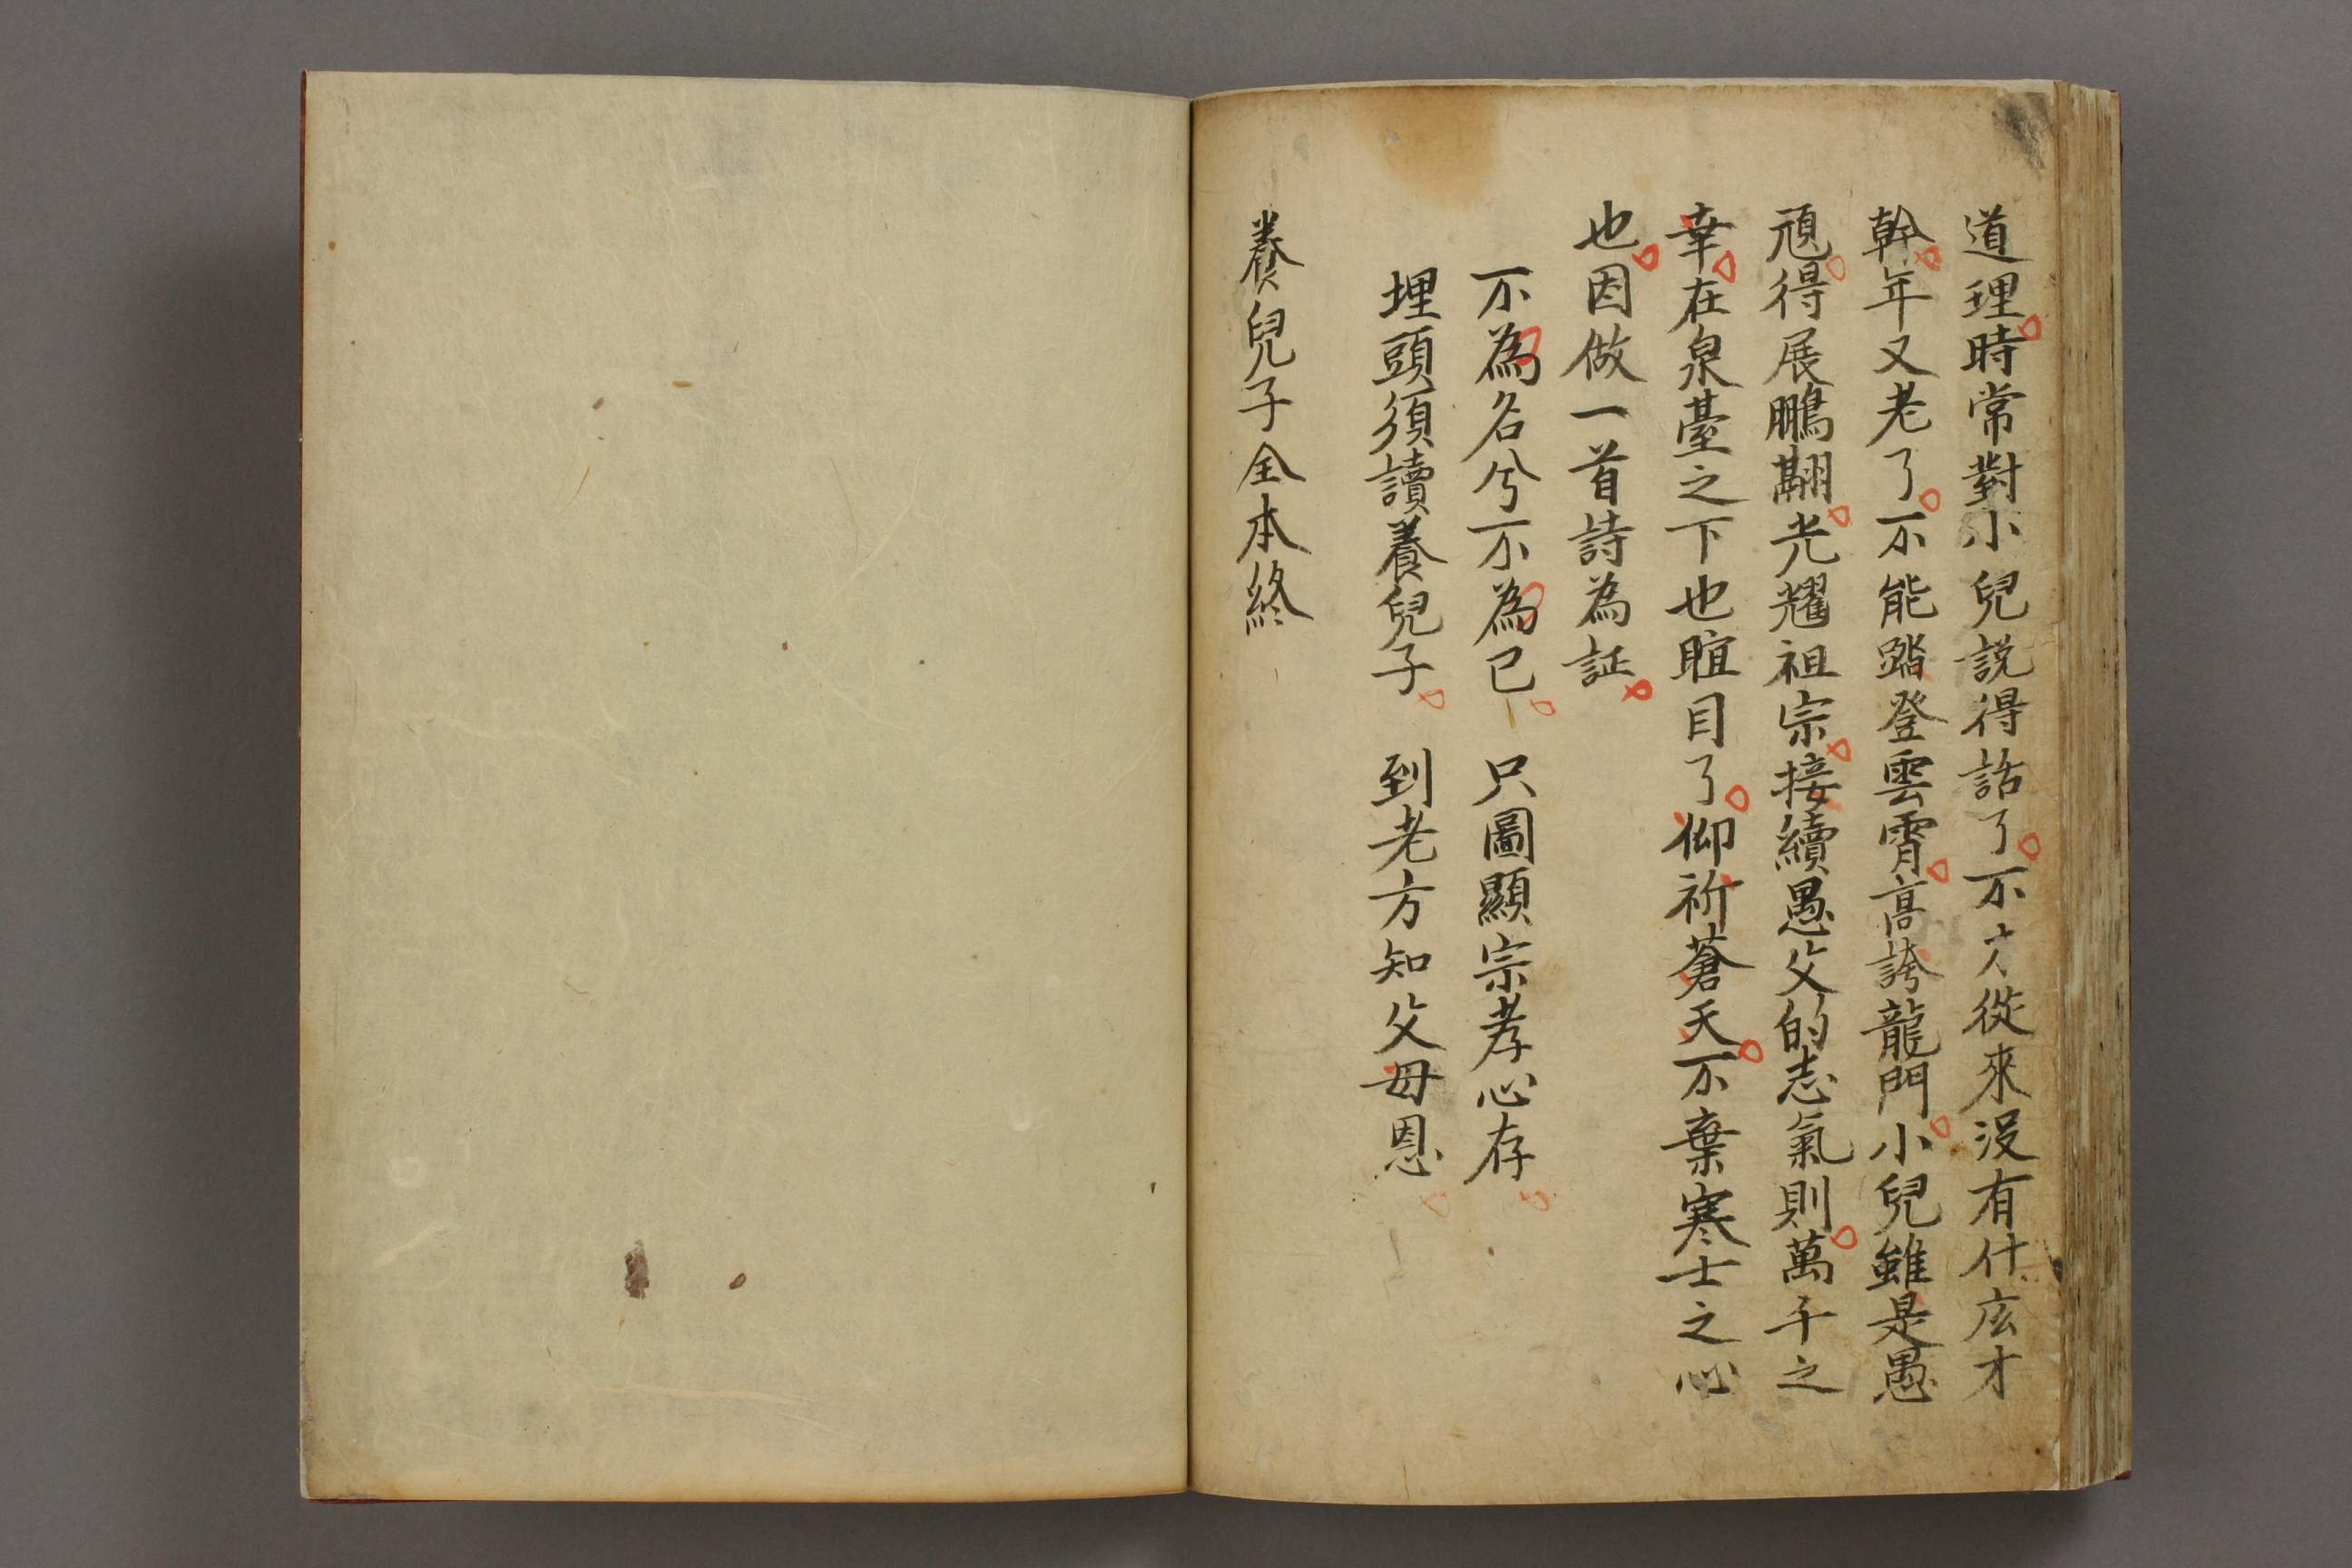 道理時常對小兒説得話了不才從來没有什庅才
幹年又老了不能踏登雲霄高誇龍門小兒雖是愚
頑得展鵬翮光耀祖宗接續愚父的志氣則萬千之
幸在泉臺之下也目了仰祈蒼天不棄寒士之心
也因做一首詩為証
不為名兮不為已　只圖顯宗孝心存
埋頭須讀養兒子　到老方知父母恩
養兒子全本終